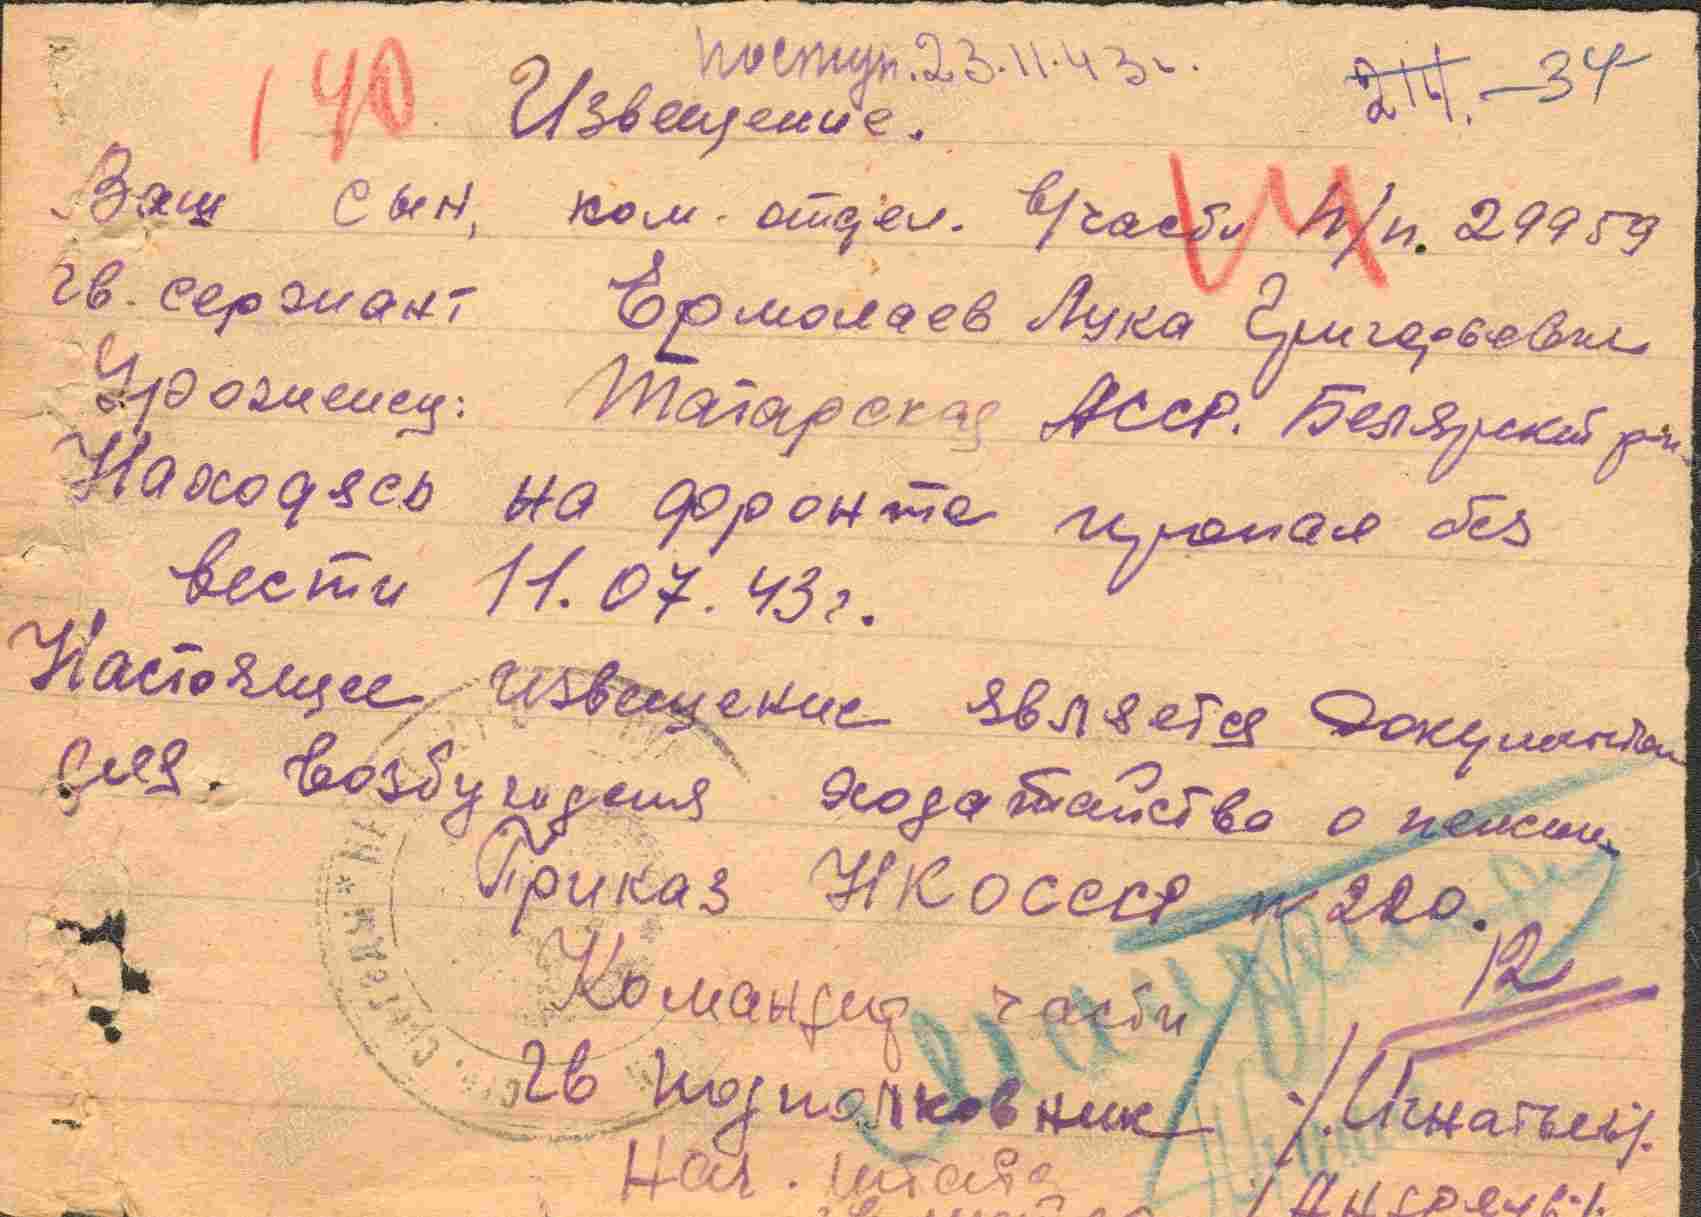 поступ. 23.11.43г.
140
Извещение.
211. -34
Ваш сын, ком. отдел. в/части п/п. 29959
гв. сержант Ермолаев Лука Григорьевич
Уроженец: Татарская АССР. Билярский р-н
Находясь на фронте пропал без
вести 11.07.43г.
Настоящее извещение является документом
для возбуждения ходатайство о пенсии.
Приказ НКОСССР N 220.
12
Командир части
гв подполковник /.Игнатьев/.
Нач. штаба